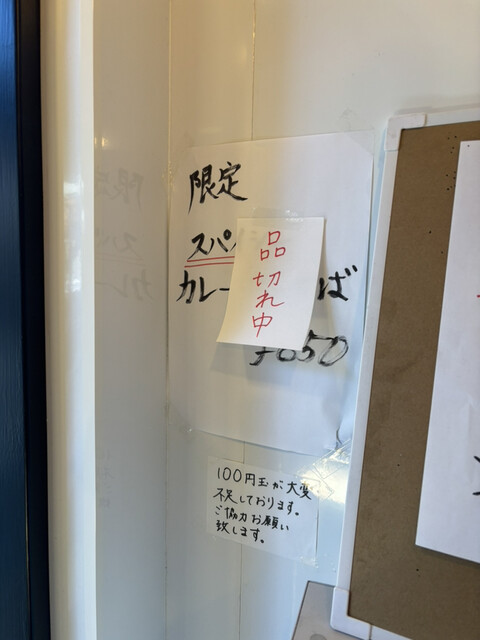 限定
スパ
カレー
ば
品切れ中
100円玉が大変
不足しております。
ご協力お願い
致します。